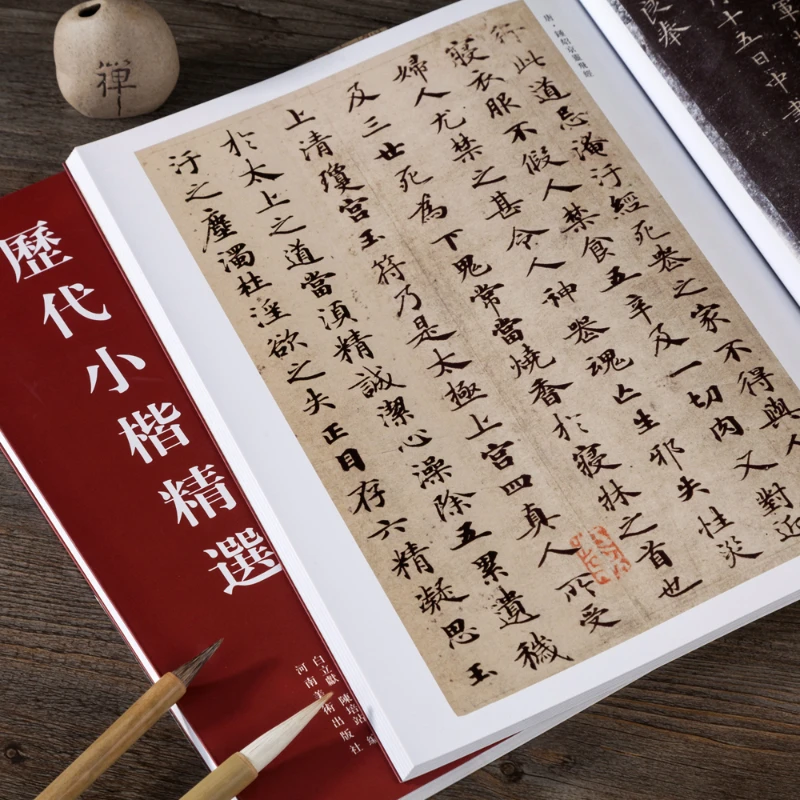 禪
唐·鍾紹京靈飛經
行此道忌淹汙經死喪之家不得與人
寢衣服不假人禁食五辛及一切肉又對近
婦人尤禁之甚令人神喪魂亡生邪失性災
及三世死為下鬼常當燒香於寢牀之首也
上清瓊宮玉符乃是太極上宮四真人所受
於太上之道當須精誠潔心澡除五累遺穢
汙之塵濁杜淫欲之失正目存六精凝思玉
軍
十五日中書
良奉
歷代小楷精選
白立獻 陳培站 編
河南美術出版社